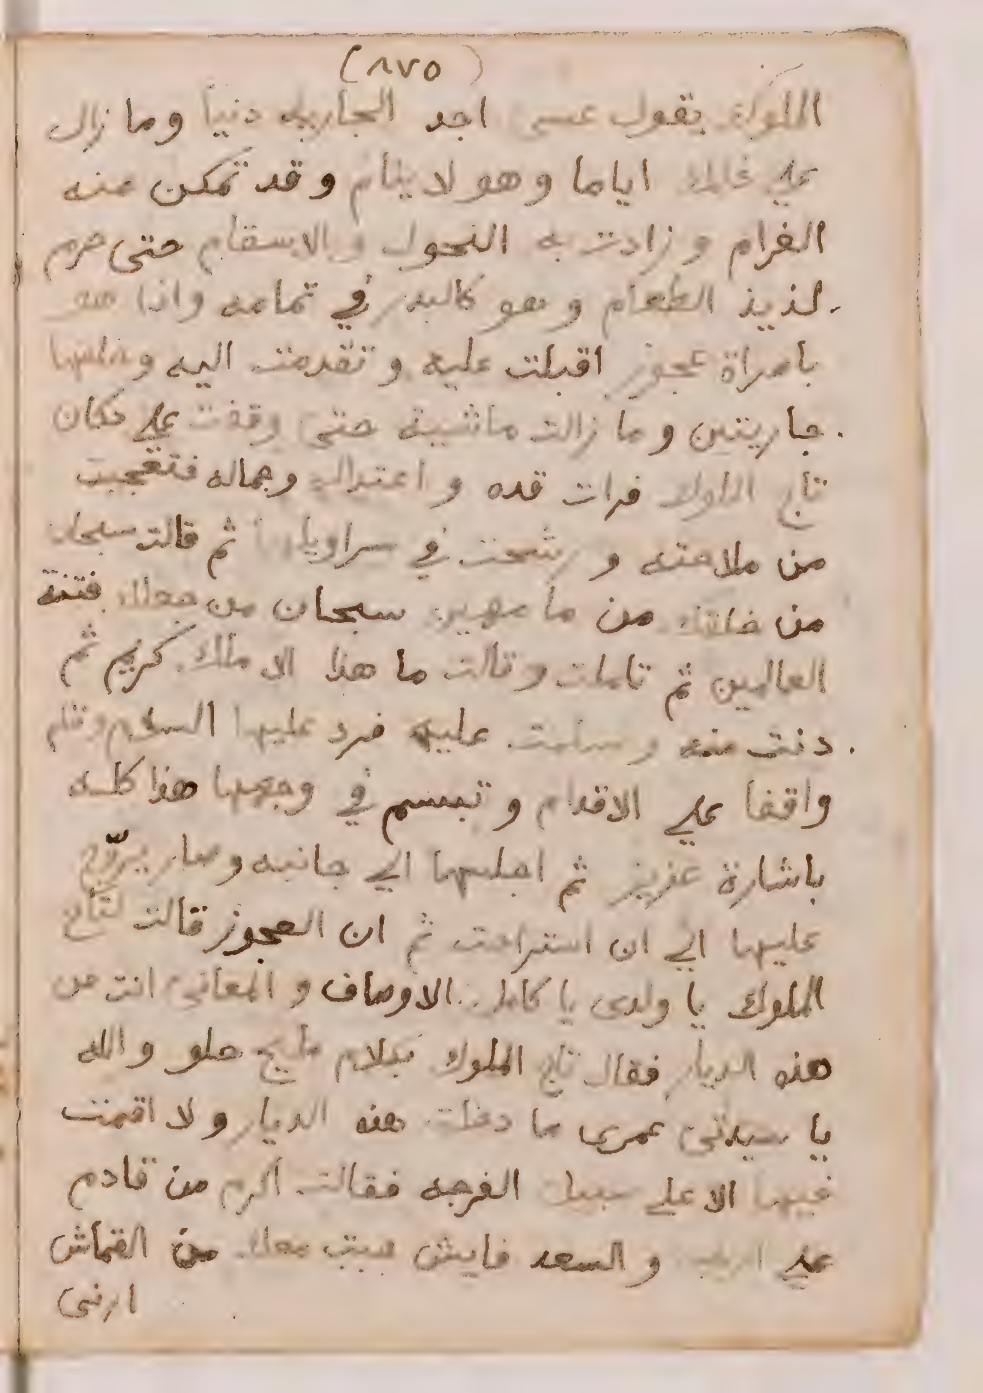 (٨٧٥)
الملوك يقول عسى اجد الجاريه دنيا وما زال
علي ذالك اياما وهو لا ينام وقد تمكن منه
الغرام وزادت به النحول والاسقام حتى حرم
لذيذ الطعام وهو كالبدر في تمامه واذا هو
بامراة عجوز اقبلت عليه وتقدمت اليه وخلفها
جاريتين وما زالت ماشية حتى وقفت علي دكان
تاج الملوك فرات قده واعتداله وجماله فتعجبت
من ملاحته ورشحت في سراويلها ثم قالت سبحان
من خلقك من ما مهين سبحان من جعلك فتنة
العالمين ثم تاملت وقالت ما هذا الا ملك كريم ثم
دنت منه وسلمت عليه فرد عليها السلام وقام
واقفا علي الاقدام وتبسم في وجهها هذا كله
باشارة عزيز ثم اجلسها الي جانبه وصار يروّح
عليها الي ان استراحت ثم ان العجوز قالت لتاج
الملوك يا ولدى يا كامل الاوصاف والمعاني انت من
هذه الديار فقال تاج الملوك بكلام مليح حلو والله
يا سيدتي عمرى ما دخلت هذه الديار ولا اقمت
فيها الا علي سبيل الفرجه فقالت اكرم من قادم
علي الرحب والسعد فايش جبت معك من القماش
ارنى